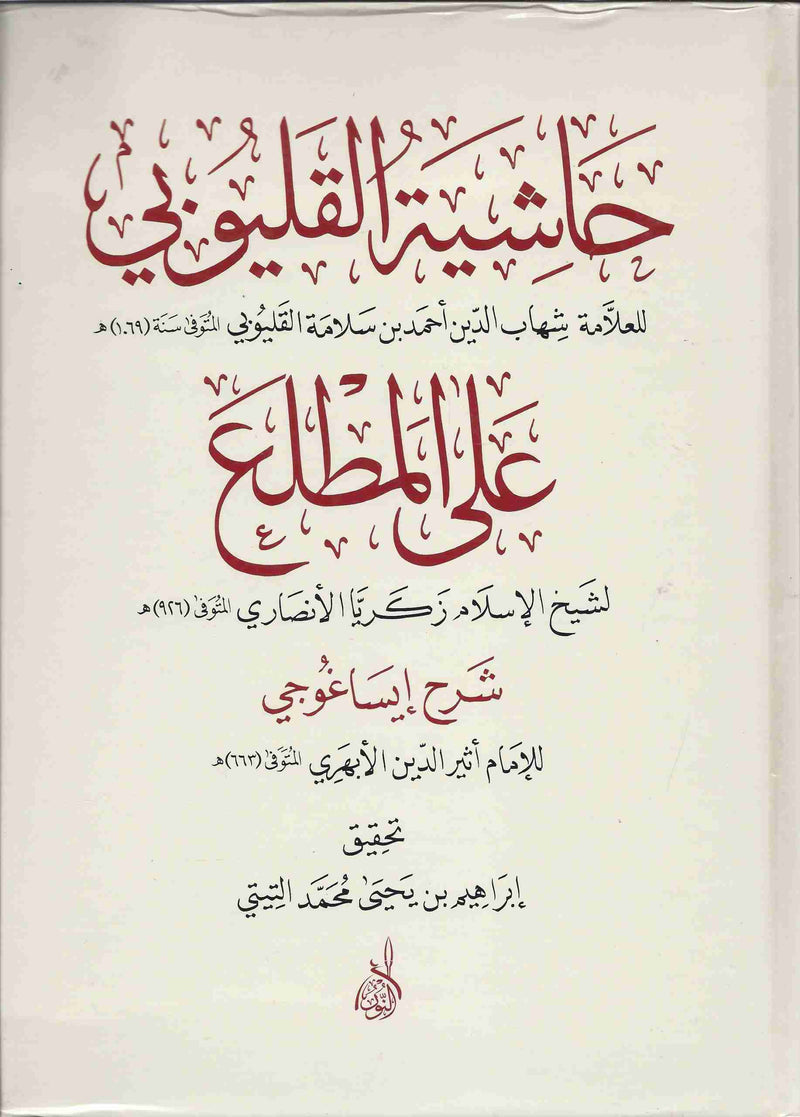 حَاشِيَةُ القَليُوُبي
للعلاَّمة شِهاب الدّين أحمَد بن سَلامَة القَليُوُبي المتُوَفىٰ سَنَة (١٠٦٩)هـ
عَلى المَطْلَع
لشَيخ الإسلام زَكَريَّا الأنصَاري المتُوَفىٰ (٩٢٦)هـ
شَرح إيسَاغُوجي
للإمَام أثير الدّين الأبهَرِي المتُوَفىٰ (٦٦٣)هـ
تحَقِيق
إبرَاهِيم بن يَحيَىٰ مُحمَّد التِيتي
النُّور